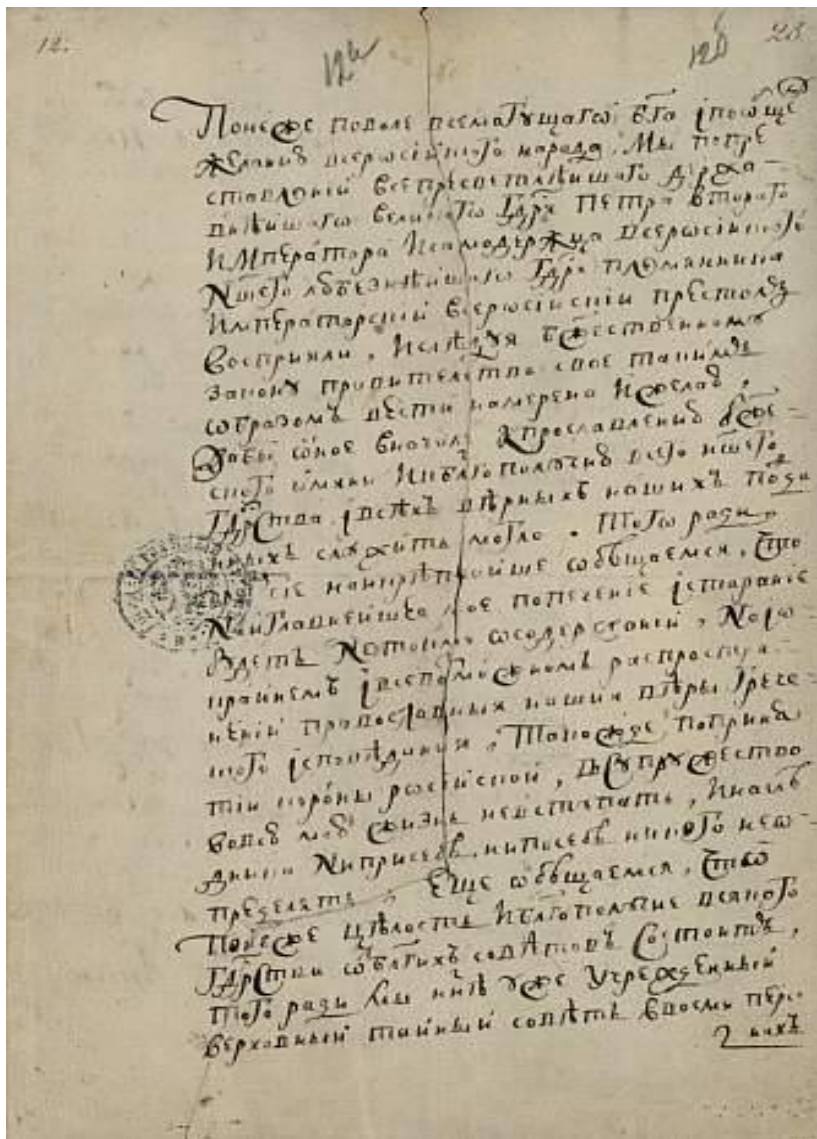 12. 12а 12б 23
Понеже поволе всемогущаго бга іпообще
желанию всеросіиского народа, Мы попре
ставленіи всепресветлѣйшаго держа
внѣйшаго великаго Гдря Петра второго
Императора Исамодержца всеросіиского
Ншего любезнѣйшаго Гдря племянника
Императорскіи всеросіискіи престолъ
восприяли, Ислѣдуя бжественному
закону правителство свое такимъ
образомъ вести намерена Ижелаю,
дабы оное вначале кпрославлению бже
ского имяни Икблгополучию всего ншего
Гдрства івсѣхъ вѣрныхъ нашихъ подда
нныхъ служить могло. Того ради,
чрезъ сие наикрѣпчайше обѣщаемся, что
Наиглавнейшее мое попечение істарание
будетъ Нетокмо осодержании, Ноіо
крайнемъ івсевозможномъ распростра
нении православныя нашия вѣры Грече
ского ісповѣдания, Такожде поприня
тіи короны росіискои, всупружество
вовсю мою жизнь невступать, Инаслѣ
дника Ниприсебѣ нипосебѣ никого неоп
пределять, Еще обѣщаемся, что
Понеже цѣлость Иблгополучие всякого
Гдрства отблгихъ совѣтовъ Состоитъ,
того ради мы ннѣ уже учрежденныи
верховныи таиныи совѣтъ ввосми персо
нахъ